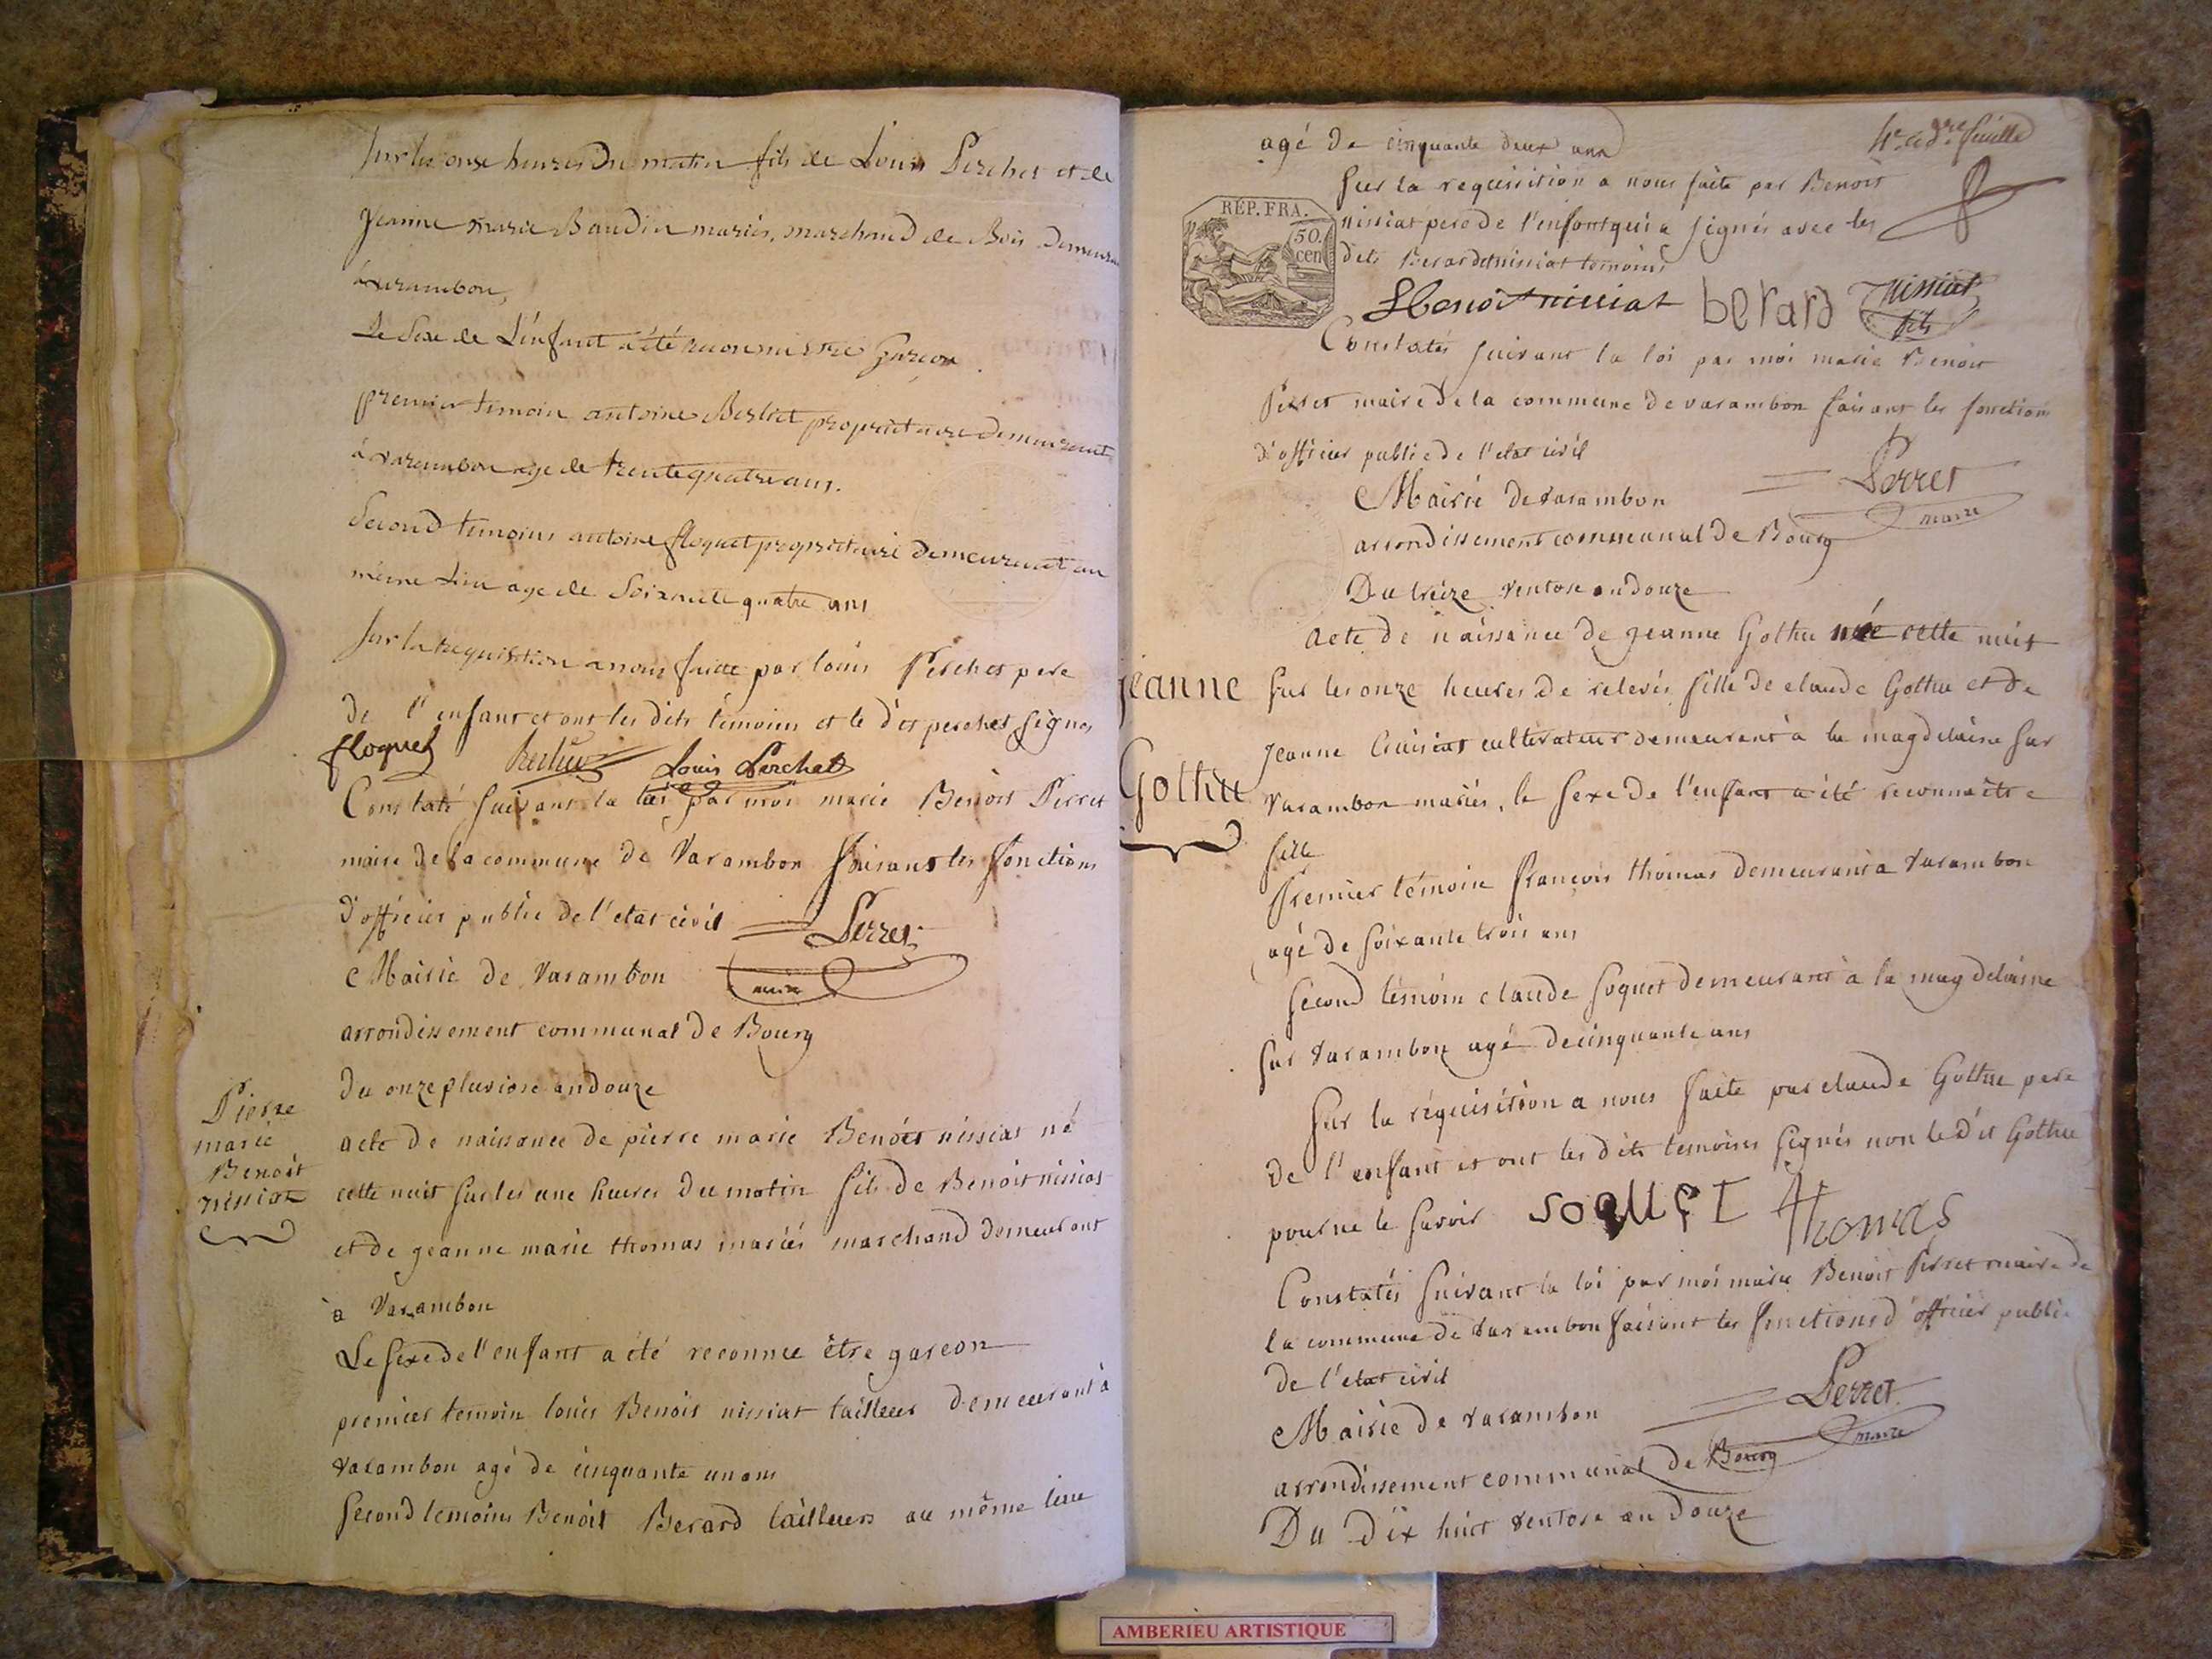 sur les onze heures du matin fils de Louis Perchet et de
Jeanne marie Baudin mariés, marchand de Bois Demeurant
à varambon,
Le Sexe de L'enfant a été reconnu etre Garçon.
premier temoin antoine Berliet propriétaire demeurant
à varambon age de trente quatre ans.
Second temoins antoine floquet propriétaire demeurant au
même Lieu age de Soixante quatre ans
Sur la requisition a nous faitte par louis Perchet pere
de l'enfant et ont les dits témoins et le dit perchet signés
floquet Berliet Louis Perchet
Constaté suivant la loi par moi marie Benoit Perret
maire de la commune de Varambon faisant les fonctions
d'officier public de l'etat civil = Perret
Mairie de Varambon maire
arrondissement communal de Bourg
du onze pluviose an douze
Pierre
marie
Benoit
nissiat
acte de naissance de pierre marie Benoit nissiat né
cette nuit sur les une heures du matin fils de Benoit nissiat
et de jeanne marie thomas mariés marchand demeurant
à Varambon
Le sexe de l'enfant a été reconnu être garcon
premier temoin louis Benoit nissiat tailleur demeurant à
varambon agé de cinquante un ans
second temoins Benoit Berard tailleurs au même lieu
agé de cinquante deux ans
4e. et dre. feuille
Sur la requisition a nous faite par Benoit
RÉP. FRA.
50.
cen
nissiat pere de l'enfant qui a signés avec les
dits Berard et nissiat temoins
Benoit nissiat berard nissiat
fils
Constatés suivant la loi par moi marie Benoit
Perret maire de la commune de varambon faisant les fonctions
d'officier public de l'etat civil
= Perret
maire
Mairie de varambon
arrondissement communal de Bourg
Du treize ventose an douze
acte de naissance de jeanne Gothu née cette nuit
jeanne
Gothu
sur les onze heures de relevés fille de claude Gothu et de
Jeanne cultivateur demeurent à la magdelaine sur
varambon mariés, le sexe de l'enfant a été reconnu être
fille
Premier témoin françois thomas demeurant a varambon
agé de soixante trois ans
second témoin claude soquet demeurant à la magdelaine
sur varambon agé de cinquante ans
Sur la réquisition a nous faite par claude Gothu pere
de l'enfant et ont les dits temoins signés non le dit Gothu
pour ne le savoir soquet thomas
Constatés suivant la loi par moi marie Benoit Perret maire de
la commune de varambon faisant les fonctions d'officier public
de l'etat civil
= Perret
maire
Mairie de varambon
arrondissement communal de Bourg
Du dix huit ventose an douze
AMBERIEU ARTISTIQUE